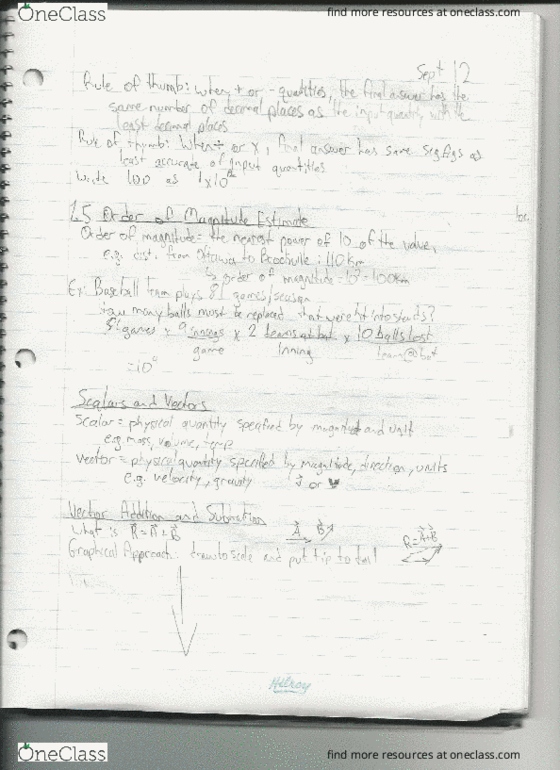 OneClass
find more resources at oneclass.com
Sept 12
Rule of thumb: when + or - quantities, the final answer has the
same number of decimal places as the input quantity with the
least decimal places
Rule of thumb: when ÷ or x, final answer has same sig figs as
least accurate of input quantities
Write 100 as 1x10²
1.5 Order of Magnitude Estimate
Order of magnitude = the nearest power of 10 of the value,
e.g. dist. from Ottawa to Brockville: 110 km
↳ order of magnitude = 10² = 100km
Ex: Baseball team plays 81 games/season
How many balls must be replaced that were hit into stands?
81 games x 9 innings x 2 teams at bat x 10 balls lost
game inning team@bat
Scalars and Vectors
Scalar = physical quantity specified by magnitude and unit
e.g. mass, volume, temp
vector = physical quantity specified by magnitude, direction, units
e.g. velocity, gravity v⃗ or v
Vector Addition and Subtraction
What is R⃗ = A⃗ + B⃗ A⃗ B⃗ R=A⃗+B⃗
Graphical Approach: draw to scale and put tip to tail
Hilroy
OneClass
find more resources at oneclass.com